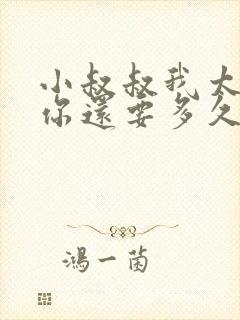 小叔叔我太
你還要多久
鴻一菌